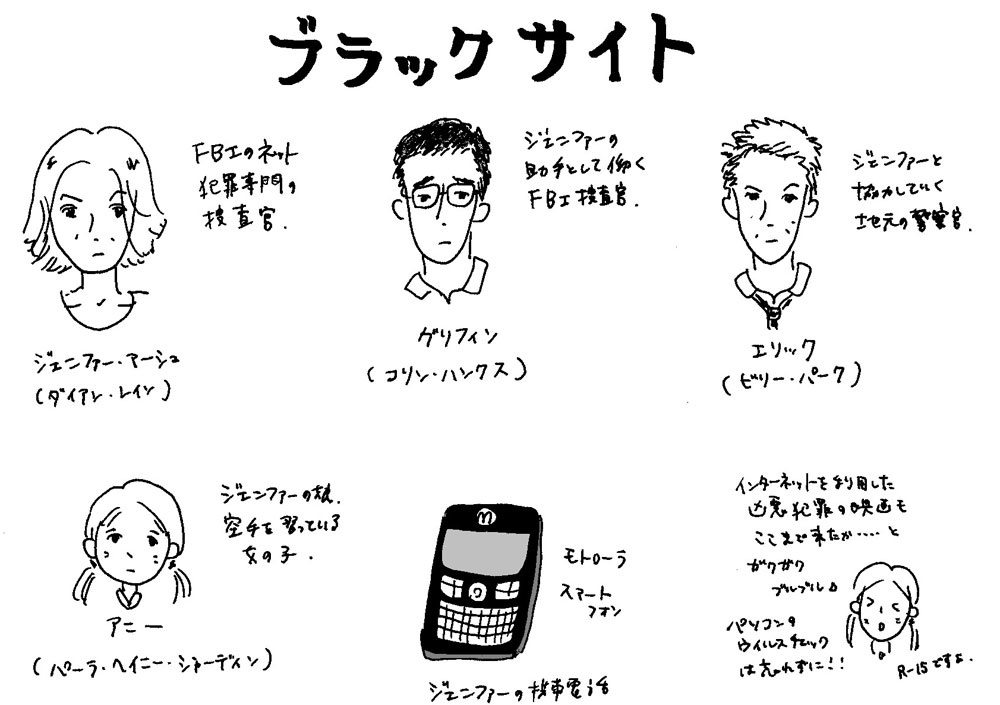 ブラックサイト
FBIのネット
犯罪専門の
捜査官.
ジェニファーの
助手として働く
FBI捜査官.
ジェニファーと
協力していく
地元の警察官.
ジェニファー・アーシュ
(ダイアン・レイン)
ゲリフィン
(コリン・ハンクス)
エリック
(ビリー・パーク)
ジェニファーの娘.
空手を習っている
女の子.
アニー
(パーラ・ヘイニー・ジャーディン)
m
モトローラ
スマート
フォン
ジェニファーの携帯電話
インターネットを利用した
凶悪犯罪の映画も
ここまで来たか・・・・と
ガクガク
ブルブル
パソコンの
ウイルスチェック
は忘れずに!!
R-15ですよ.